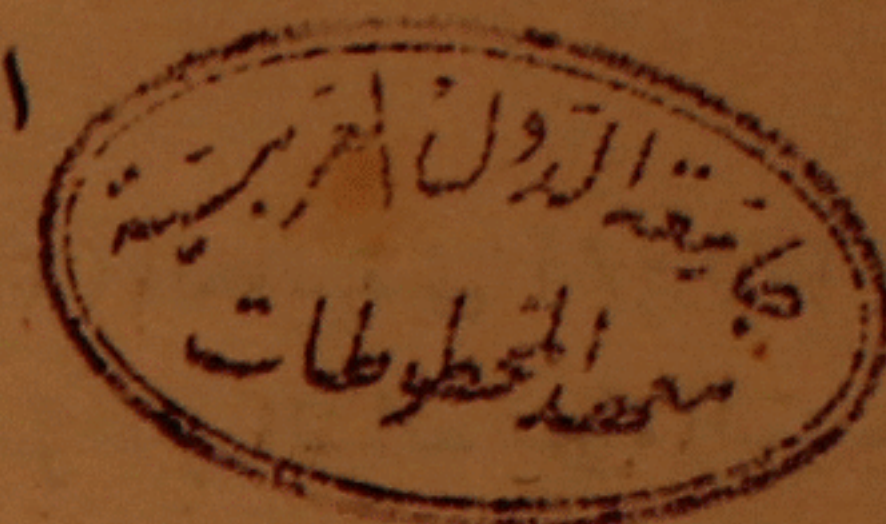 جامعة الدول العربية
معهد المخطوطات
١